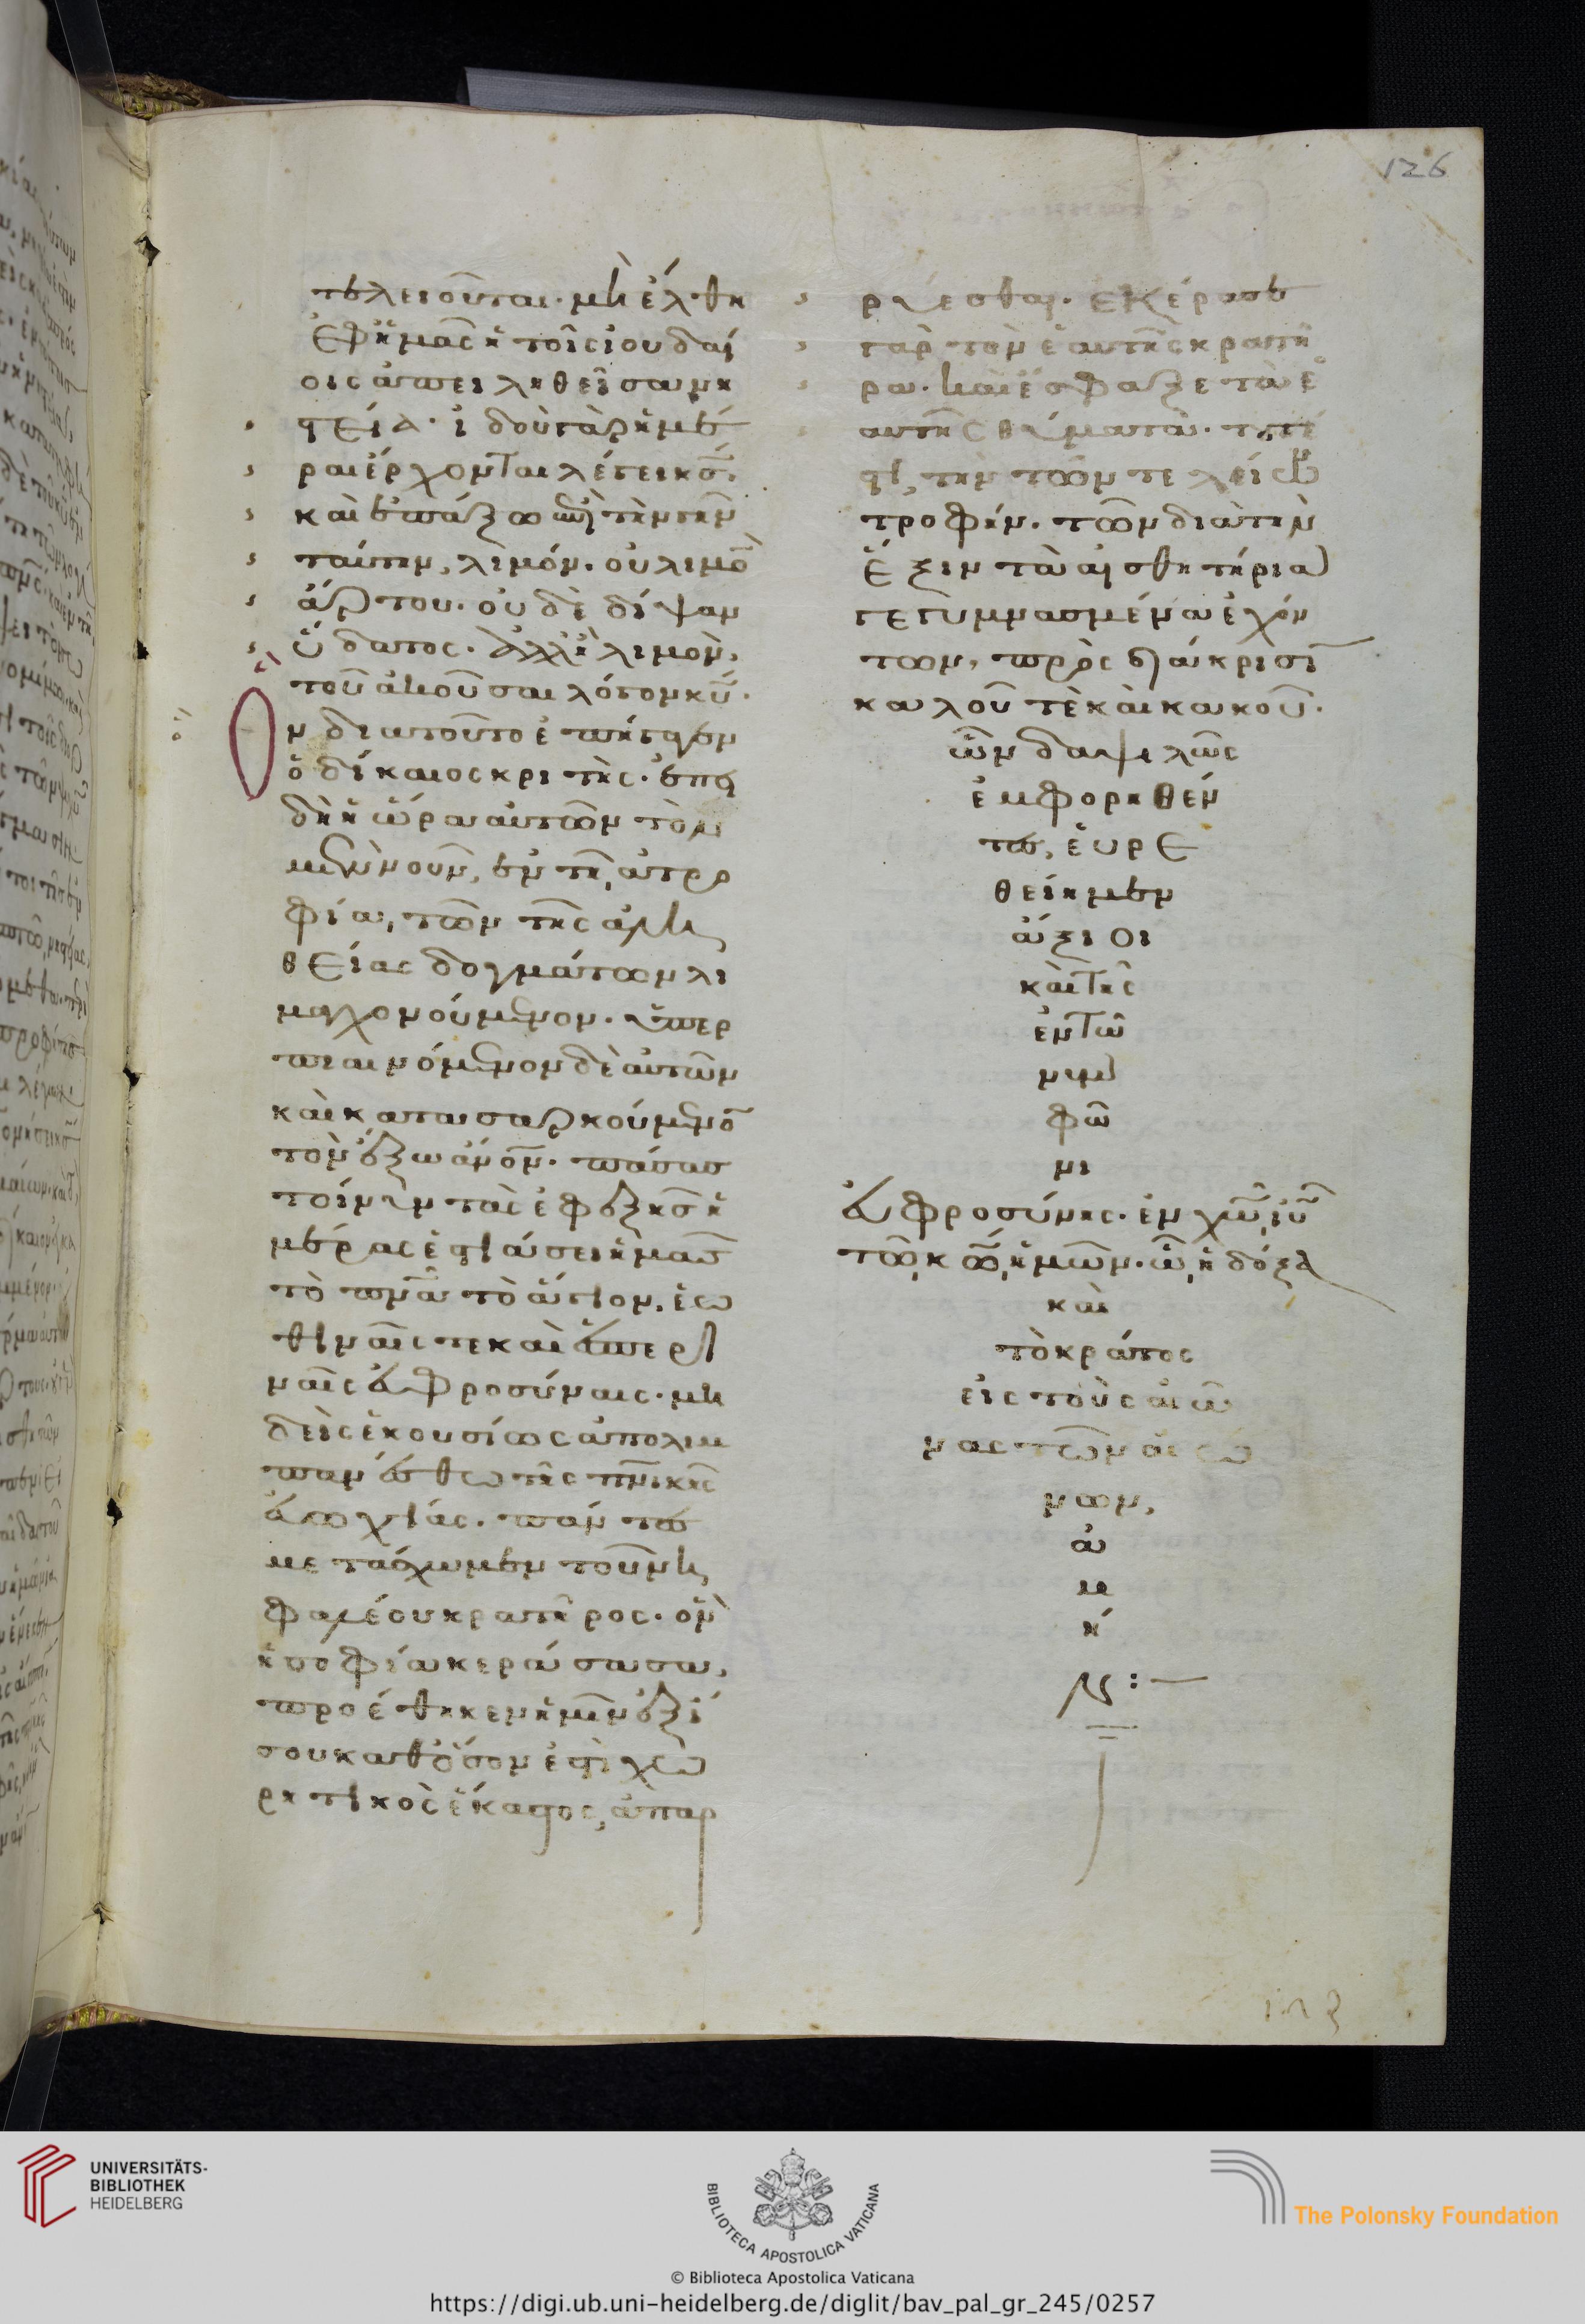 126
τελειοῦνται· μὴ ἔλθη
ἐφ' ἡμᾶς ἡ τοῖς ἰουδαί
οις ἀπειληθεῖσα νη
στεία· ἰδοὺ γὰρ ἡμέ
ραι ἔρχονται λέγει κς.
καὶ ἐπάξω ἐπὶ τὴν γῆν
ταύτην, λιμόν. οὐ λιμὸ
ἄρτου· οὐδὲ δίψαν
ὕδατος· ἀλλὰ λιμὸν,
τοῦ ἀκοῦσαι λόγον κυ.
ὃν διατοῦτο ἐπήγαγεν
ὁ δίκαιος κριτὴς· ἐπει
δὴ ἑώρα αὐτῶν τὸν
μὲν νοῦν, ἐν τῆ ἀτρο
φία, τῶν τῆς ἀλη
θείας δογμάτων λι
μαγχονούμενον· ὑπερ
πιαινόμενον δὲ αὐτῶν
καὶ κατασαρκούμενο
τὸν ἔξω ἄνον· πάσας
τοίνυν τὰς ἐφεξῆς ἡ
μέρας ἑστιάσει ἡμᾶς
τὸ πνα τὸ ἅγιον, ἑω
θιναῖς τε καὶ ἑσπερι
ναῖς εὐφροσύναις· μη
δεὶς ἑκουσίως ἀπολιμ
πανέσθω τῆς πνικῆς
εὐωχίας· πάντες
μετάσχωμεν τοῦ νη
φαλέου κρατῆρος· ὃν
ἡ σοφία κεράσασα,
προέθηκεν ἡμῖν ἐξί
σου καθόσον ἐστὶ χω
ρητικὸς ἕκαστος, ἀπαρ
ρύεσθαι· ἐκέρασε
γὰρ τὸν ἑαυτῆς κρατῆ
ρα· καὶ ἔσφαξε τὰ ἑ
αυτῆς θύματα· τουτέ
στι, τὴν τῶν τελείων
τροφήν· τῶν διὰ τὴν
ἕξιν τὰ αἰσθητήρια
γεγυμνασμένα ἐχόν
των, πρὸς διάκρισι
καλοῦ τὲ καὶ κακοῦ·
ὧν δαψιλῶς
ἐμφορηθέν
τες, εὑρε
θείημεν
ἄξιοι
καὶ τῆς
ἐν τῶ
νυμ
φῶ
νι
εὐφροσύνης· ἐν χω ιυ
τῶ κω ἡμῶν· ὧ ἡ δόξα
καὶ
τὸ κράτος
εἰς τοὺς αἰῶ
νας τῶν αἰώ
νων,
ἀ
μ
ή
ν:—
UNIVERSITÄTS-
BIBLIOTHEK
HEIDELBERG
BIBLIOTECA APOSTOLICA VATICANA
The Polonsky Foundation
© Biblioteca Apostolica Vaticana
https://digi.ub.uni-heidelberg.de/diglit/bav_pal_gr_245/0257